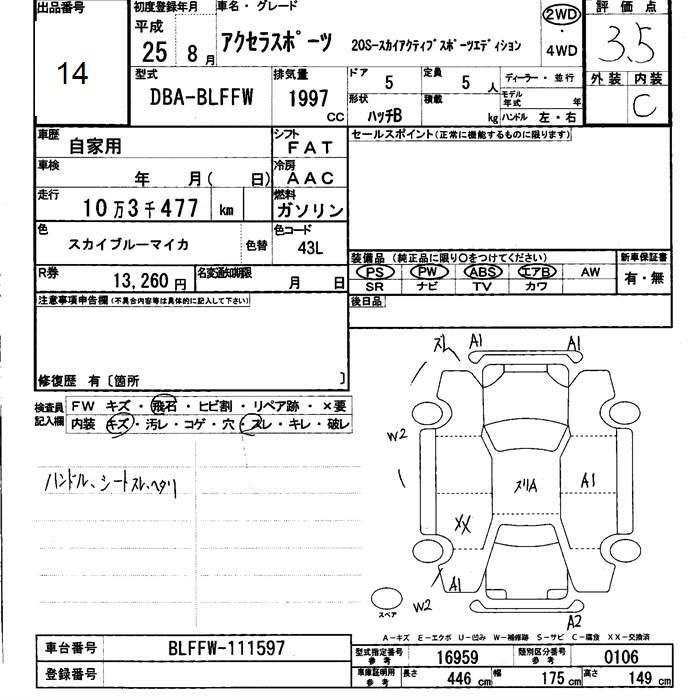 出品番号
14
初度登録年月
平成
25 8月
車名・グレード
アクセラスポーツ 20S-スカイアクティブスポーツエディション
2WD
・
4WD
評価点
3.5
外装 内装
C
型式
DBA-BLFFW
排気量
1997
CC
ドア
5
定員
5 人
形状
ハッチB
積載
kg
ディーラー・並行
モデル年式 年
ハンドル 左・右
車歴
自家用
シフト
FAT
車検
年 月( 日)
冷房
AAC
走行
10万3千477 km
燃料
ガソリン
色
スカイブルーマイカ
色替
色コード
43L
R券
13,260 円
名変通知期限
月 日
セールスポイント(正常に機能するものに限ります)
装備品 (純正品に限り〇をつけてください)
PS PW ABS エアB AW
SR ナビ TV カワ
新車保証書
有・無
後日品
注意事項申告欄(不具合内容等は具体的に記入して下さい)
修復歴 有〔箇所 〕
検査員記入欄
FW キズ・飛石・ヒビ割・リペア跡・×要
内装 キズ・汚レ・コゲ・穴・スレ・キレ・破レ
ハンドル、シートスレ、ヘタリ
ズレ A1 A1
W2
ズリA
A1
XX
A1
W2
A2
スペア
A-キズ E-エクボ U-凹み W-補修跡 S-サビ C-腐食 XX-交換済
車台番号
BLFFW-111597
登録番号
型式指定番号
参考
16959
類別区分番号
参考
0106
車庫証明用
参考
長さ 446 cm
幅 175 cm
高さ 149 cm